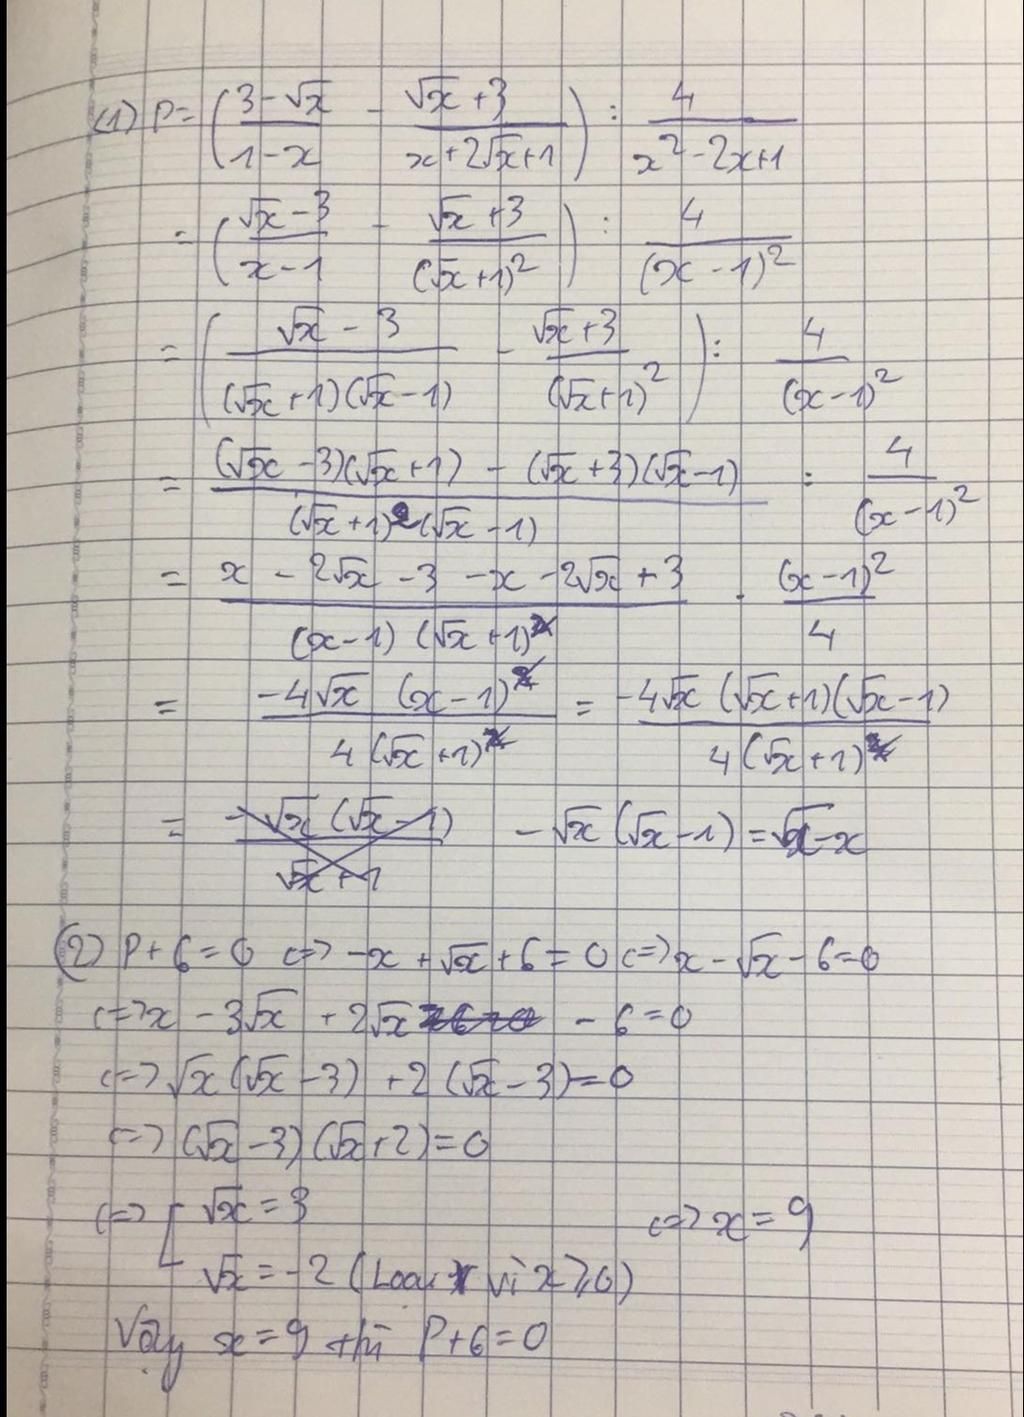 (1) P = ( (3-√x)/(1-x) - (√x+3)/(x+2√x+1) ) : 4/(x²-2x+1)
= ( (√x-3)/(x-1) - (√x+3)/(√x+1)² ) : 4/(x-1)²
= ( (√x-3)/((√x+1)(√x-1)) - (√x+3)/(√x+1)² ) : 4/(x-1)²
= ((√x-3)(√x+1) - (√x+3)(√x-1))/((√x+1)²(√x-1)) : 4/(x-1)²
= (x-2√x-3-x-2√x+3)/((x-1)(√x+1)) . (x-1)²/4
= (-4√x(x-1))/(4(√x+1)) = (-4√x(√x+1)(√x-1))/(4(√x+1))
= -√x(√x-1)/(√x+1) -√x(√x-1) = √x-x
(2) P+6=0 <=> -x+√x+6=0 <=> x-√x-6=0
<=> x-3√x+2√x -6=0
<=> √x(√x-3)+2(√x-3)=0
<=> (√x-3)(√x+2)=0
<=> [ √x=3 <=> x=9
√x=-2 (Loại vì x⩾0)
Vậy x=9 thì P+6=0